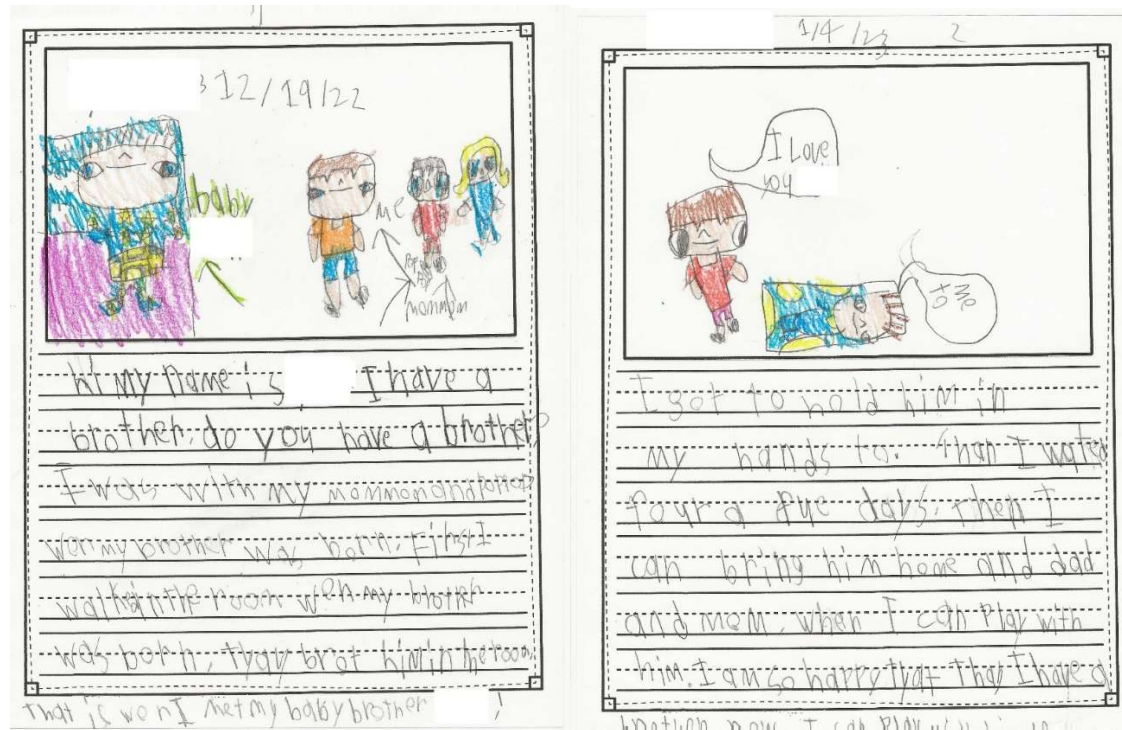 12/19/22
baby
me
mommom
hi my name is I have a
brother. do you have a brother?
I was with my mommom and
wen my brother was born. First I
walked in the room wen my brother
was born. tyay brot him in the room
that is wen I met my baby brother !
1/4/23 2
I Love
you
to
me
I got to hold him in
my hands to. than I wated
four a fue days. then I
can bring him home and dad
and mom. when I can Play with
him. I am so happy tyat that I have a
brother now I can Play